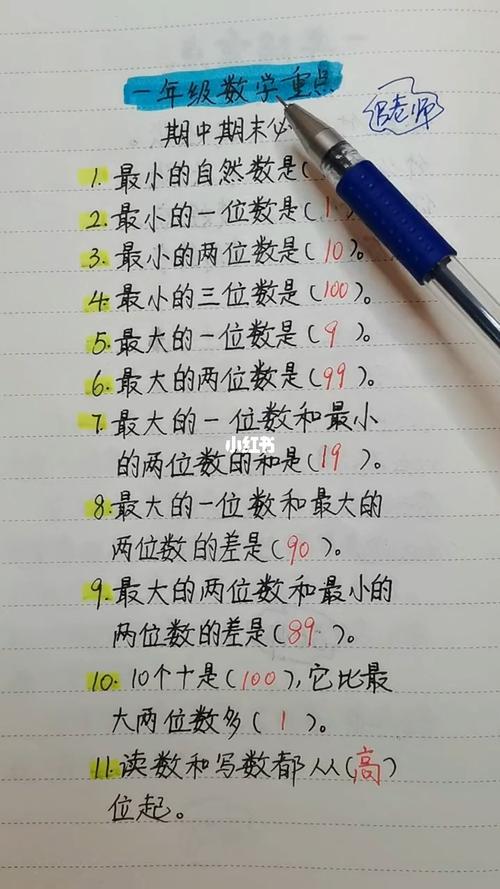 一年级数学重点
老师
期中期末必
1. 最小的自然数是(
2. 最小的一位数是(1
3. 最小的两位数是(10)。
4. 最小的三位数是(100)。
5. 最大的一位数是(9)。
6. 最大的两位数是(99)。
7. 最大的一位数和最小
的两位数的和是(19)。
小红书
8. 最大的一位数和最大的
两位数的差是(90)。
9. 最大的两位数和最小的
两位数的差是(89)。
10. 10个十是(100),它比最
大两位数多(1)。
11. 读数和写数都从(高)
位起。